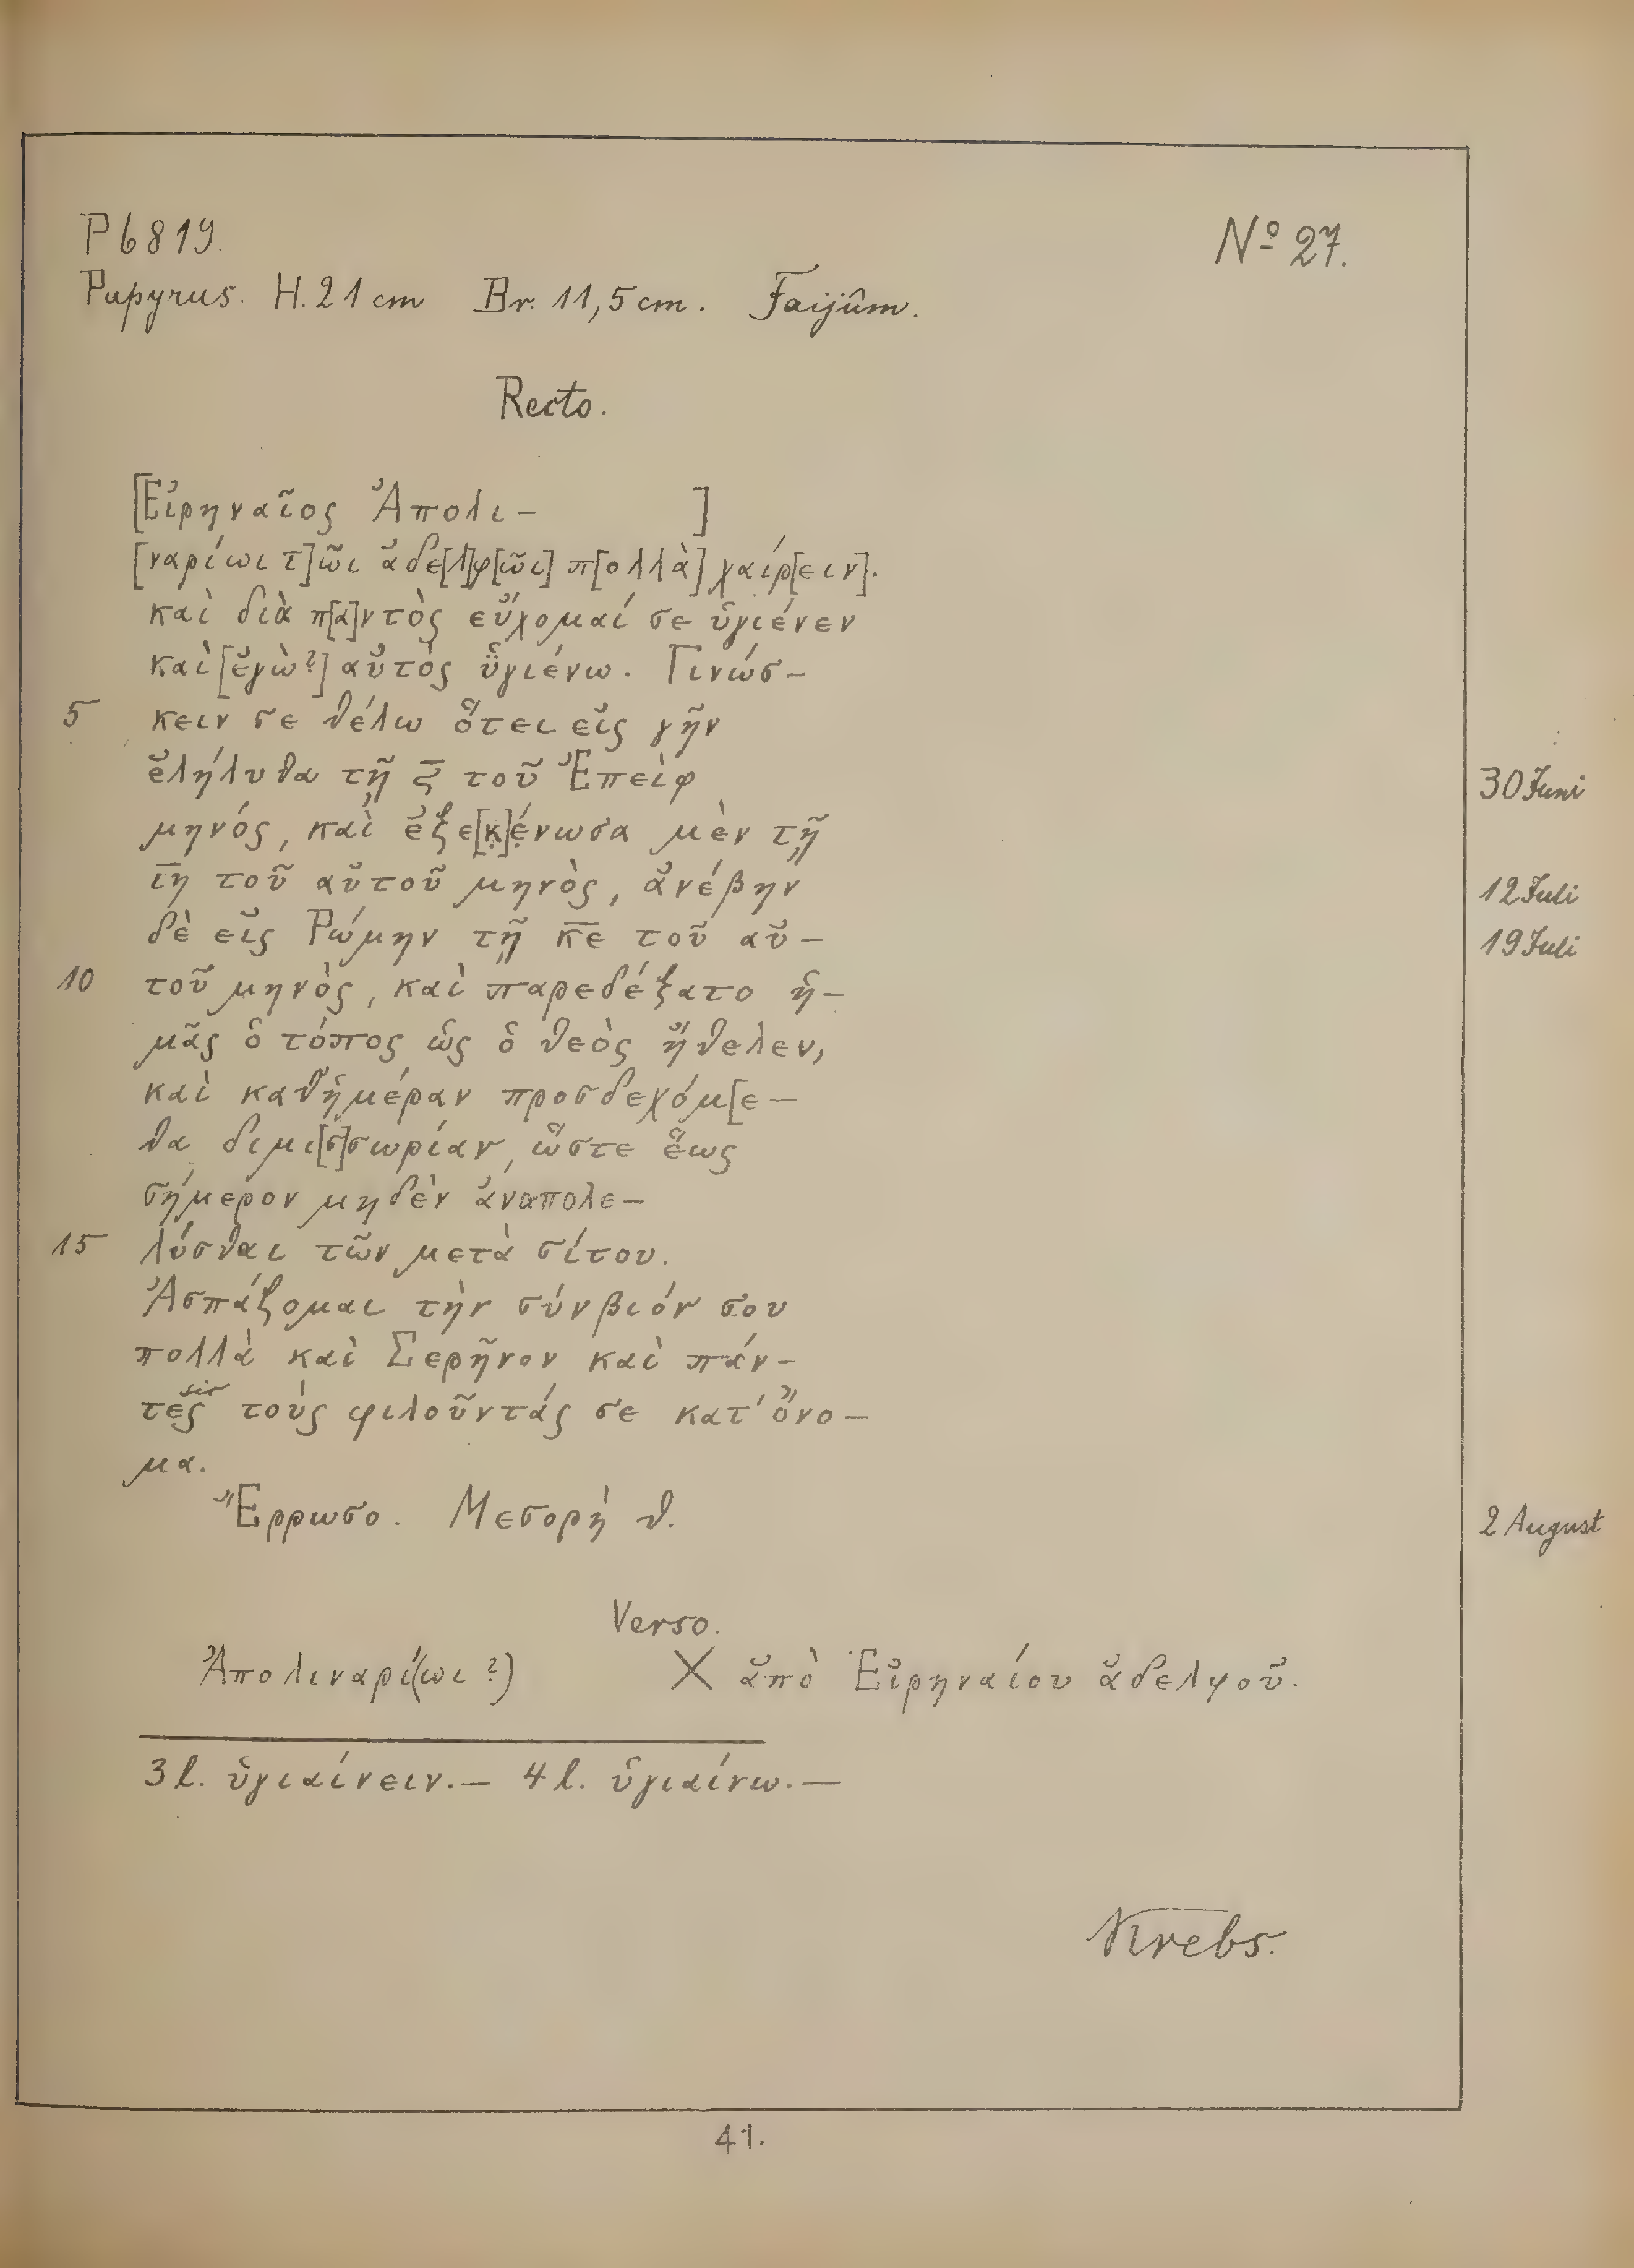 P 6819. Nº 27.
Papyrus. H. 21 cm Br. 11,5 cm. Faijûm.
Recto.
[Εἰρηναῖος Ἀπολι- ]
[ναρίωι τ]ῶι ἀδε[λ]φ[ῶι] π[ολλὰ] χαίρ[ειν].
καὶ διὰ π[α]ντὸς εὔχομαί σε ὑγιένεν
καὶ [ἐγὼ?] αὐτὸς ὑγιένω. Γινώσ-
5 κειν σε θέλω ὅτει εἰς γῆν
ἐλήλυθα τῇ ξ̅ τοῦ Ἐπεὶφ 30 Juni
μηνός, καὶ ἐξε[κ̣]έ̣νωσα μὲν τῇ
ι̅η τοῦ αὐτοῦ μηνὸς, ἀνέβην 12 Juli
δὲ εἰς Ῥώμην τῇ κ̅ε τοῦ αὐ- 19 Juli
10 τοῦ μηνὸς, καὶ παρεδέξατο ἡ-
μᾶς ὁ τόπος ὡς ὁ θεὸς ἤθελεν,
καὶ καθἡμέραν προσδεχόμ[ε-
θα διμι[σ]σωρίαν, ὥστε ἕως
σήμερον μηδὲν ἀναπολε-
15 λύσθαι τῶν μετὰ σίτου.
Ἀσπάζομαι τὴν σύνβιόν σου
πολλὰ καὶ Σερῆνον καὶ πάν-
sic
τες τοὺς φιλοῦντάς σε κατ' ὄνο-
μα.
Ἔρρωσο. Μεσορὴ θ. 2 August
Verso.
Ἀπολιναρί(ωι?) X ἀπὸ Εἰρηναίου ἀδελφοῦ.
3 l. ὑγιαίνειν. — 4 l. ὑγιαίνω. —
Krebs.
41.